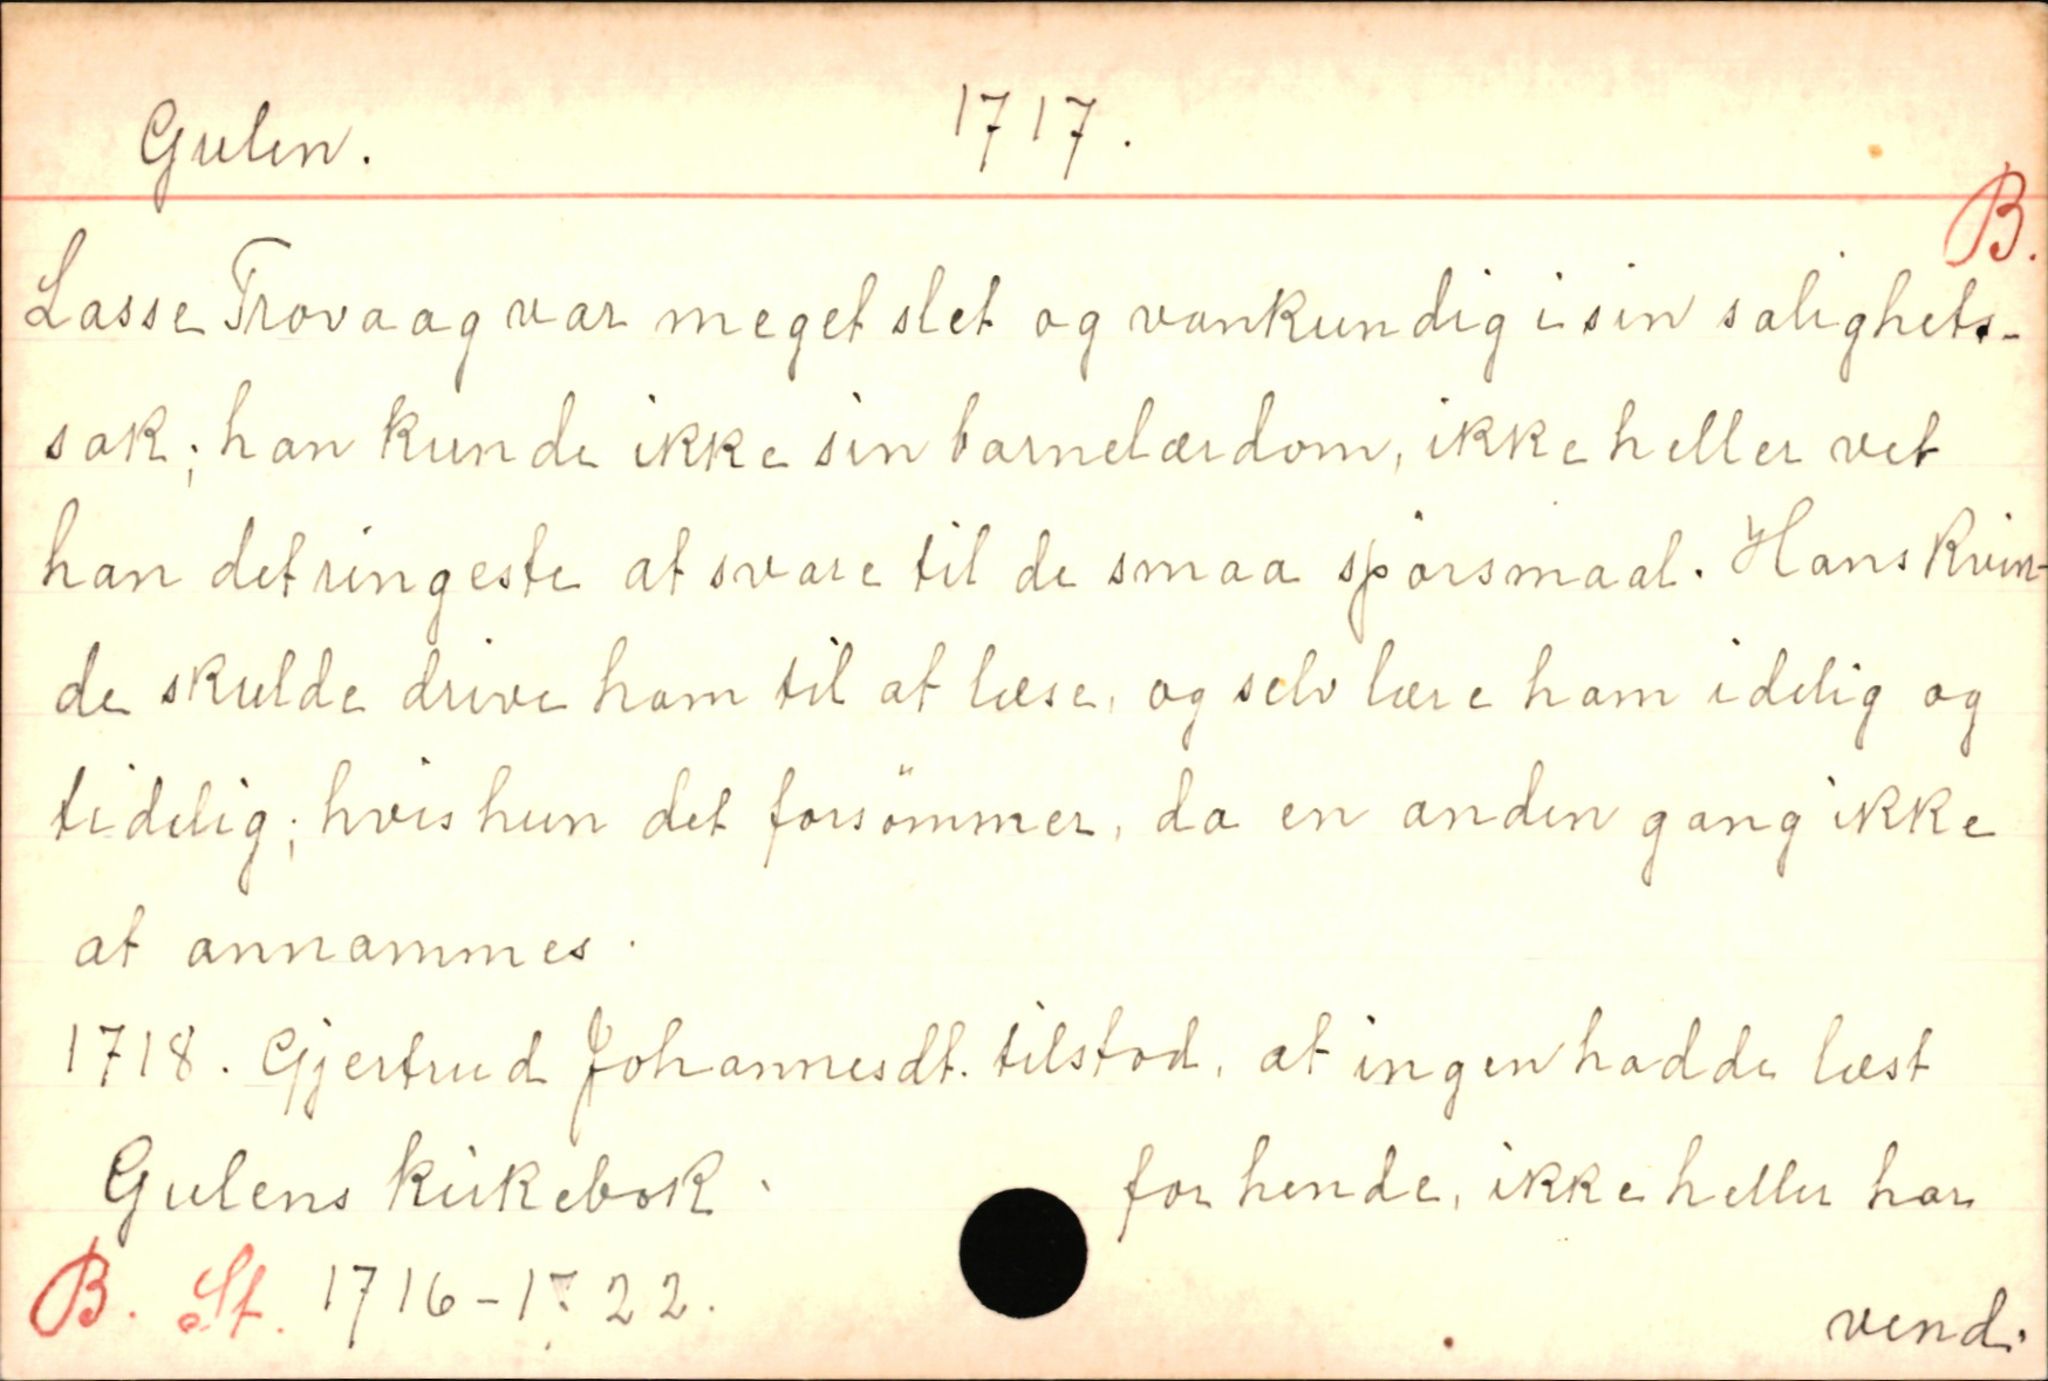 Gulen. 1717.
B.
Lasse Trovaag var meget slet og vankundig i sin salighets-
sak; han kunde ikke sin barnelærdom, ikke heller vet
han det ringeste at svare til de smaa spörsmaal. Hans kvin-
de skulde drive ham til at læse, og selv lære ham idelig og
tidelig; hvis hun det forsömmer, da en anden gang ikke
at annammes.
1718. Gjertrud Johannesdt. tilstod, at ingen hadde læst
Gulens kirkebok. for hende, ikke heller har
B. St. 1716-1722.
vend.